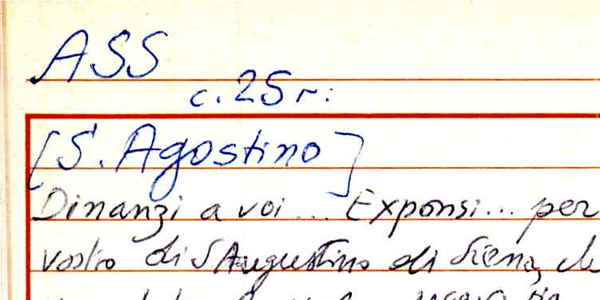 ASS
c. 25 r:
[S. Agostino]
Dinanzi a voi ... Exponsi ... per
vostro di S Augustino di Siena, ch